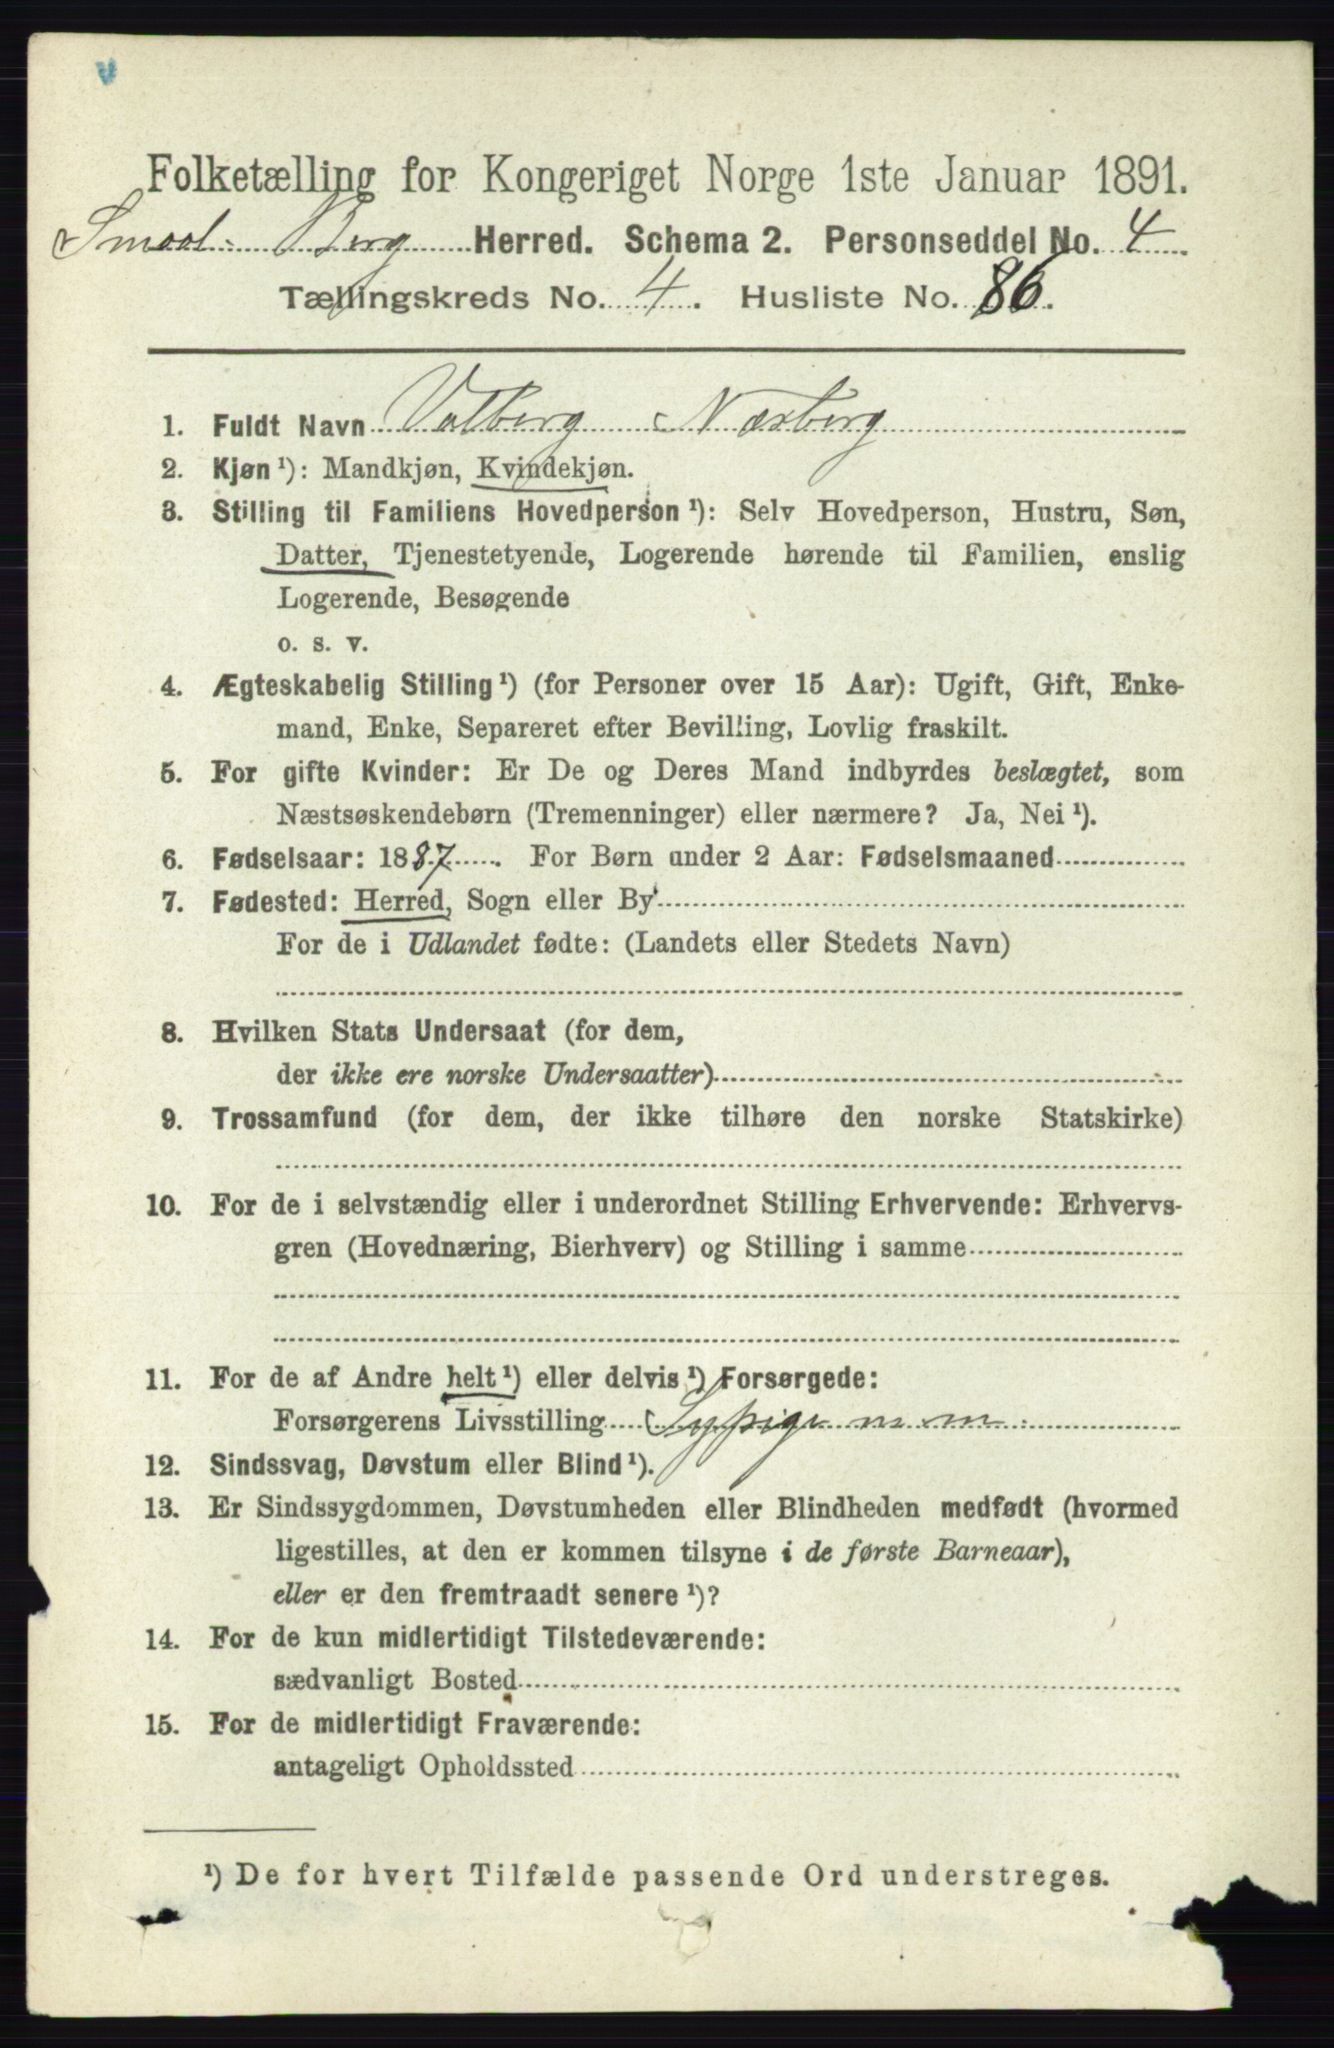 Folketælling for Kongeriget Norge 1ste Januar 1891.
Smaal. Berg Herred. Schema 2. Personseddel No. 4
Tællingskreds No. 4. Husliste No. 86.
1. Fuldt Navn Valberg Næsberg
2. Kjøn ¹): Mandkjøn, Kvindekjøn.
3. Stilling til Familiens Hovedperson ¹): Selv Hovedperson, Hustru, Søn,
Datter, Tjenestetyende, Logerende hørende til Familien, enslig
Logerende, Besøgende
o. s. v.
4. Ægteskabelig Stilling ¹) (for Personer over 15 Aar): Ugift, Gift, Enke-
mand, Enke, Separeret efter Bevilling, Lovlig fraskilt.
5. For gifte Kvinder: Er De og Deres Mand indbyrdes beslægtet, som
Næstsøskendebørn (Tremenninger) eller nærmere? Ja, Nei ¹).
6. Fødselsaar: 1887. For Børn under 2 Aar: Fødselsmaaned
7. Fødested: Herred, Sogn eller By
For de i Udlandet fødte: (Landets eller Stedets Navn)
8. Hvilken Stats Undersaat (for dem,
der ikke ere norske Undersaatter)
9. Trossamfund (for dem, der ikke tilhøre den norske Statskirke)
10. For de i selvstændig eller i underordnet Stilling Erhvervende: Erhvervs-
gren (Hovednæring, Bierhverv) og Stilling i samme
11. For de af Andre helt ¹) eller delvis ¹) Forsørgede:
Forsørgerens Livsstilling Sypige m m.
12. Sindssvag, Døvstum eller Blind ¹).
13. Er Sindssygdommen, Døvstumheden eller Blindheden medfødt (hvormed
ligestilles, at den er kommen tilsyne i de første Barneaar),
eller er den fremtraadt senere ¹)?
14. For de kun midlertidigt Tilstedeværende:
sædvanligt Bosted
15. For de midlertidigt Fraværende:
antageligt Opholdssted
¹) De for hvert Tilfælde passende Ord understreges.